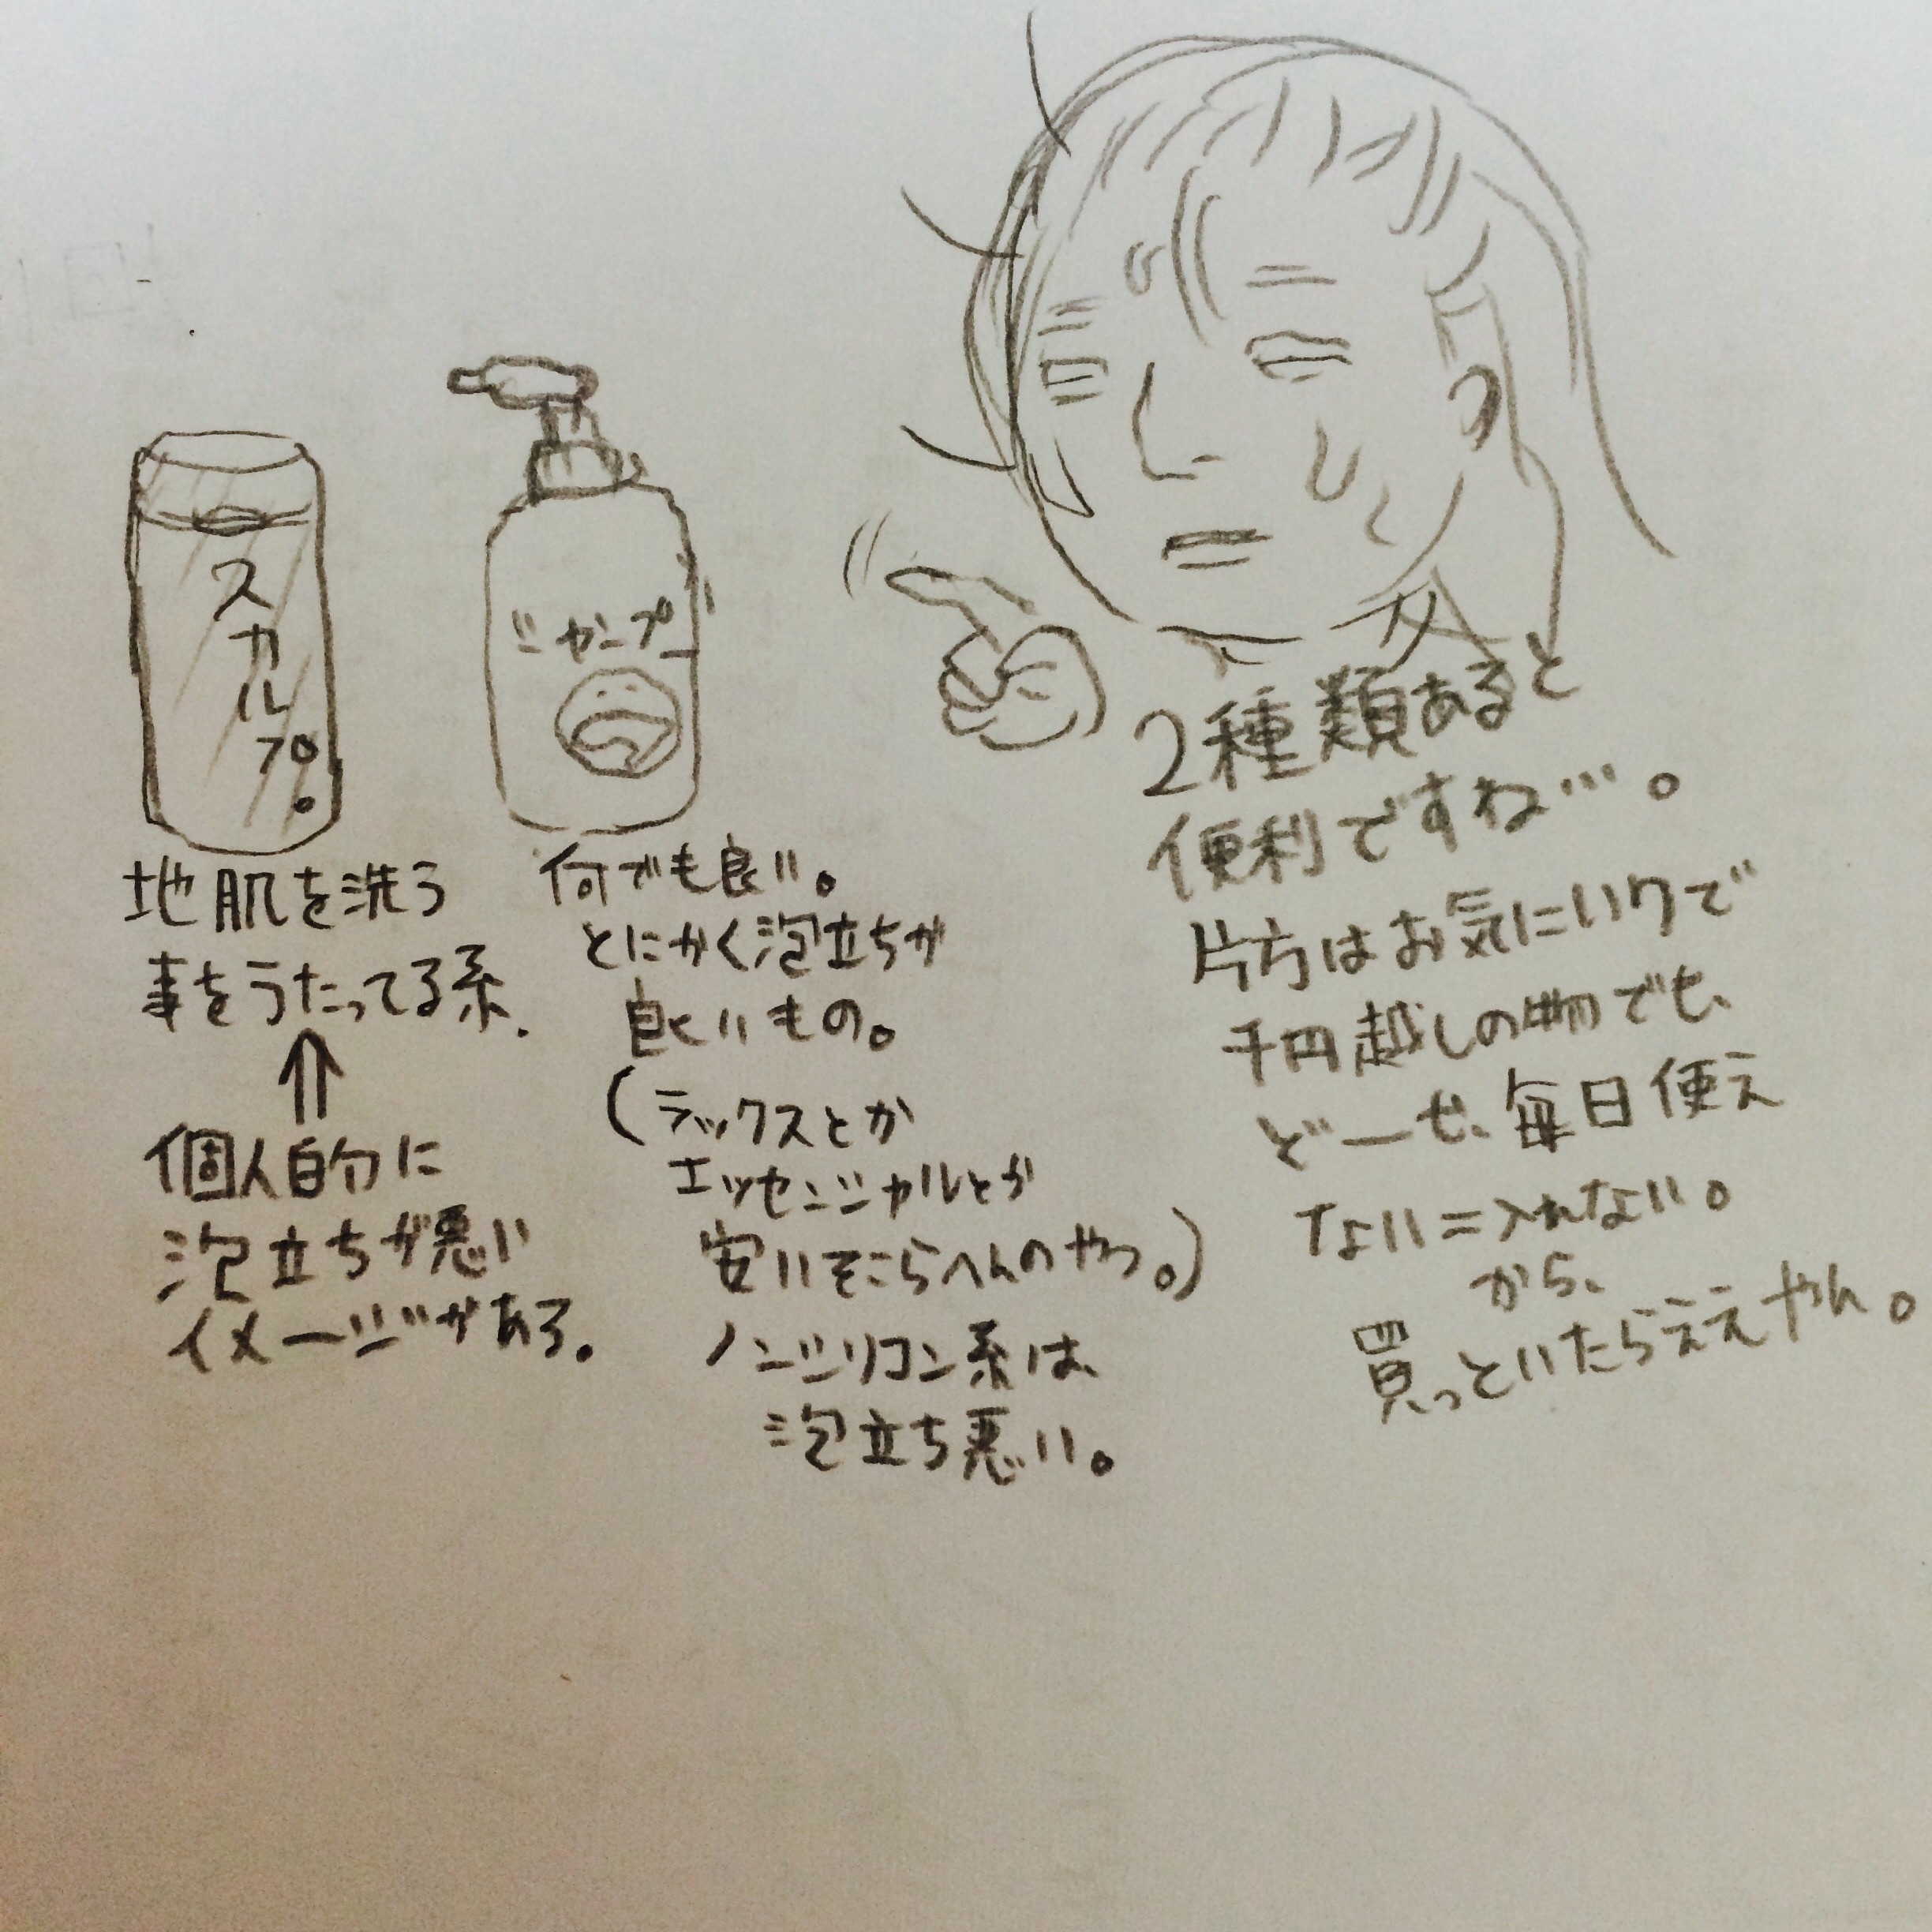 スカルプ。
地肌を洗う
事をうたってる系.
⇑
個人的に
泡立ちが悪い
イメージがある。
何でも良い。
とにかく泡立ちが
良いもの。
(ラックスとか
エッセンシャルとか
安いそこらへんのやつ。)
ノンシリコン系は、
泡立ち悪い。
2種類あると
便利ですね…。
片方はお気にいりで
千円越しの物でも、
どーせ、毎日使え
ない=入れない。
から、
買っといたらええやん。